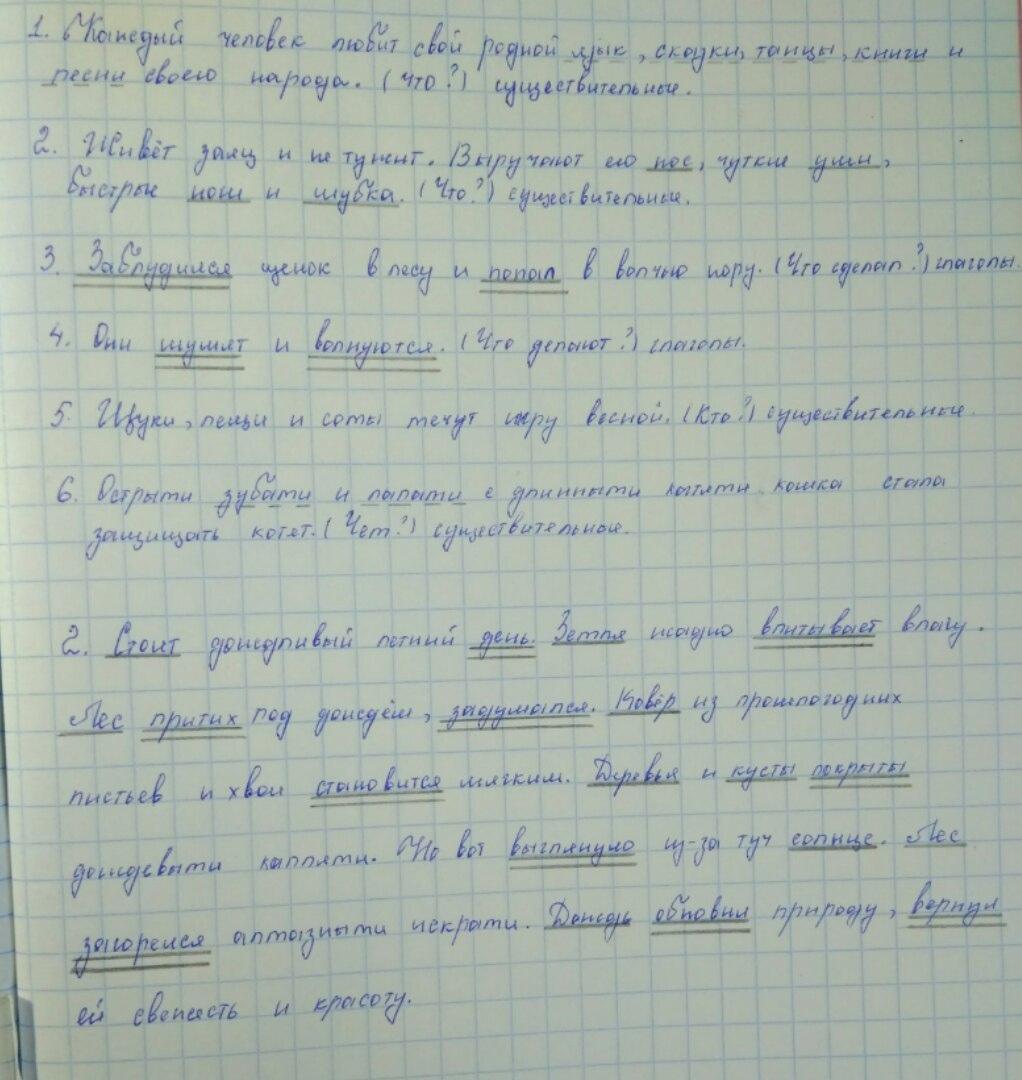 1. Каждый человек любит свой родной язык, сказки, танцы, книги и
песни своего народа. (Что?) существительные.
2. Живёт заяц и не тужит. Выручают его нос, чуткие уши,
быстрые ноги и шубка. (Что?) существительные.
3. Заблудился щенок в лесу и попал в волчью нору. (Что сделал?) глаголы.
4. Они шумят и волнуются. (Что делают?) глаголы.
5. Щуки, лещи и сомы мечут икру весной. (Кто?) существительные.
6. Острыми зубами и лапами с длинными когтями кошка стала
защищать котят. (Чем?) существительные.
2. Стоит дождливый летний день. Земля жадно впитывает влагу.
Лес притих под дождём, задумался. Ковёр из прошлогодних
листьев и хвои становится мягким. Деревья и кусты покрыты
дождевыми каплями. Но вот выглянуло из-за туч солнце. Лес
загорелся алмазными искрами. Дождь обновил природу, вернул
ей свежесть и красоту.